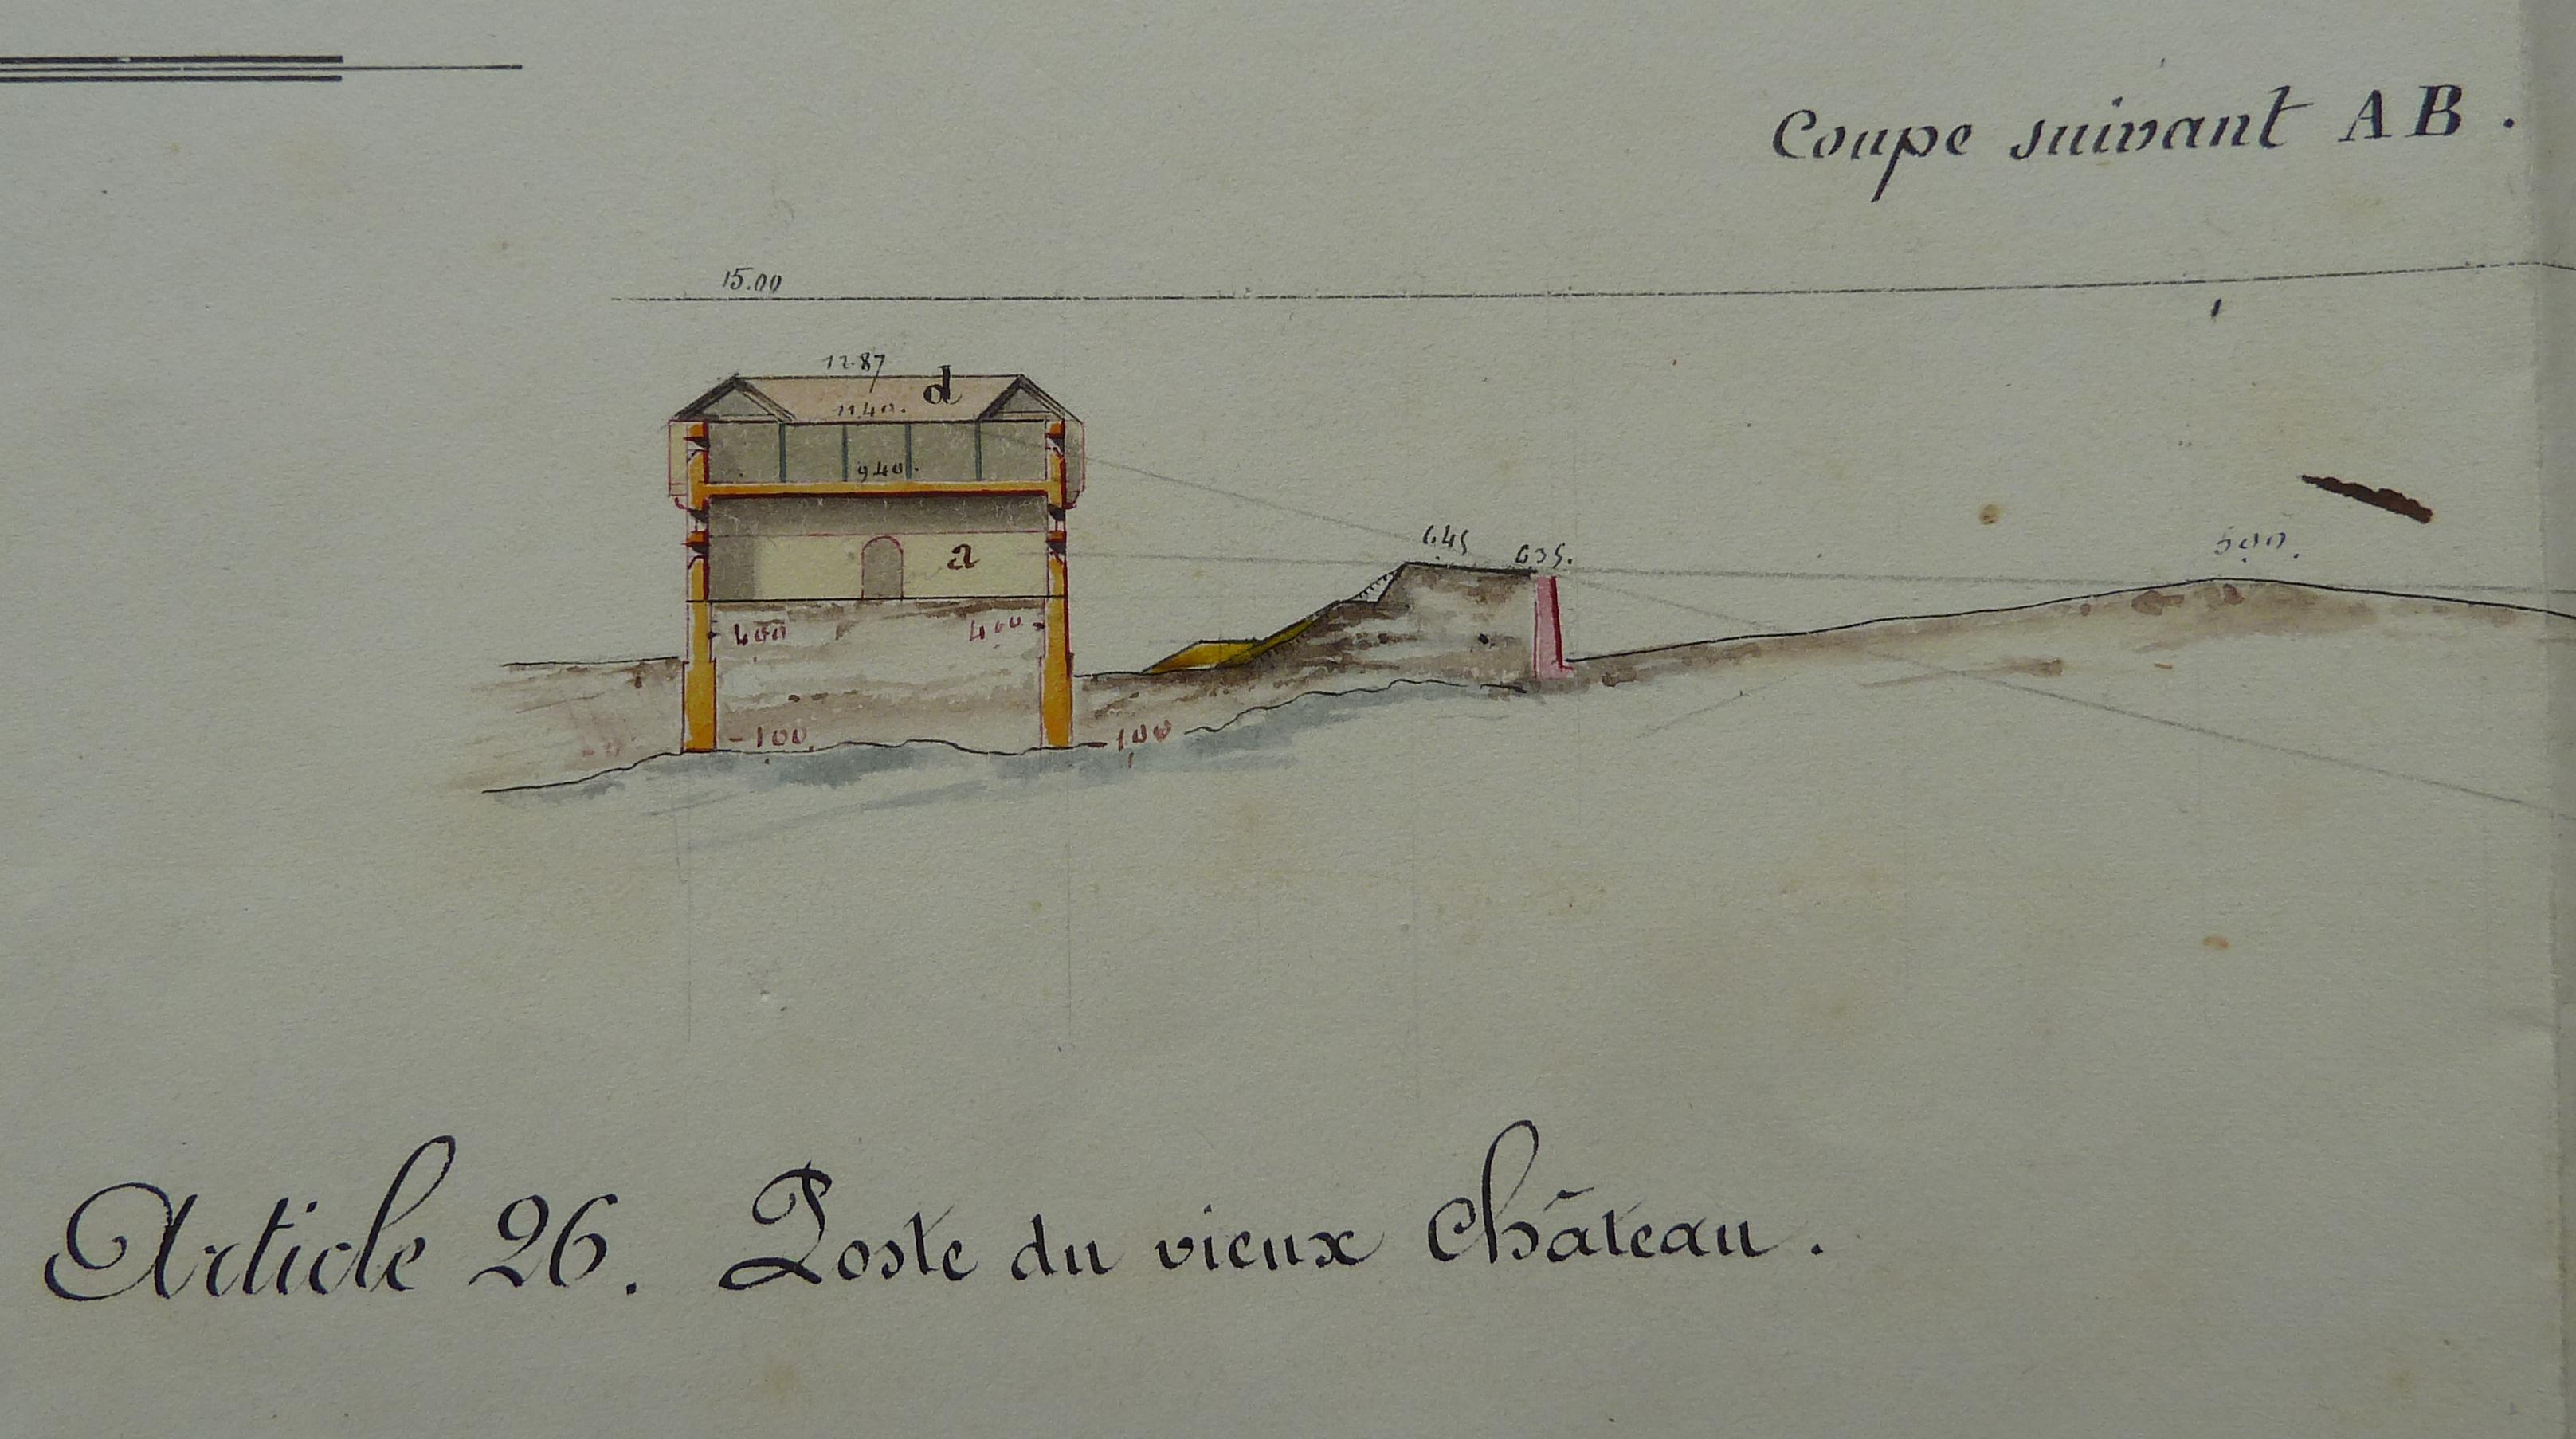 Coupe suivant AB.
15.00
12.87
d
11.40.
9.40.
a
6.45
6.35.
4.00
4.00
-1.00.
-1.00
Article 26. Poste du vieux Château.